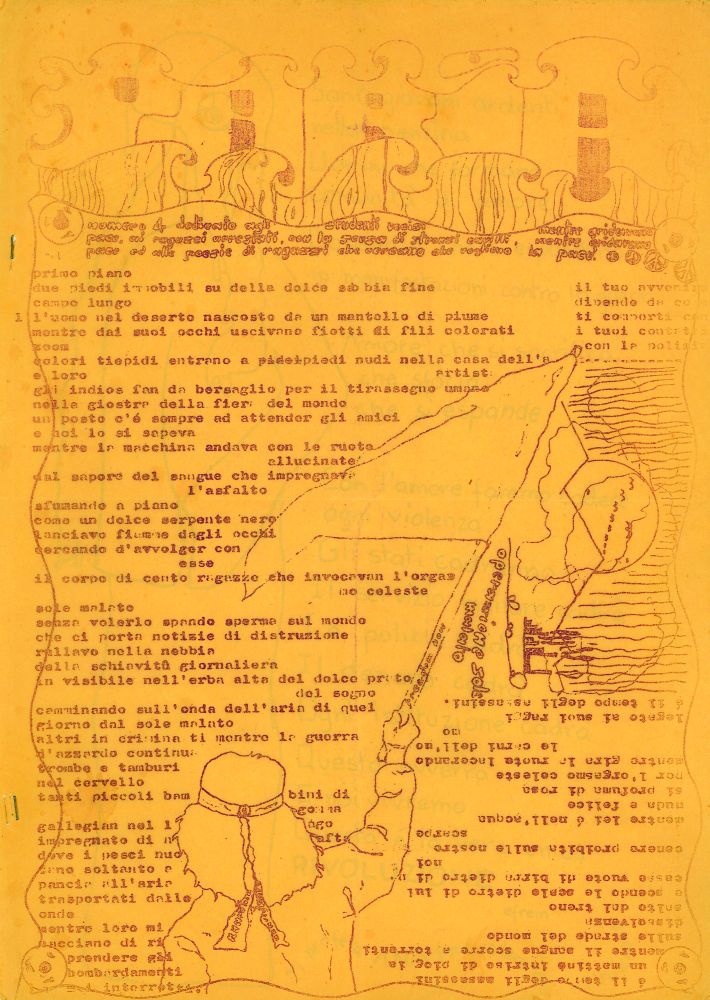 numero 4 dedicato agli studenti uccisi mentre gridavano
pace, ai ragazzi arrestati, con la forza di stronzi capelli, mentre gridavano
pace ed alle poesie di ragazzi che cercano che vogliono la pace.
primo piano
due piedi immobili su della dolce sabbia fine
campo lungo
l'uomo nel deserto nascosto da un mantello di piume
mentre dai suoi occhi uscivano fiotti di fili colorati
zoom
colori tiepidi entrano a piedi nudi nella casa dell'a
artist
e loro
gli indios fan da bersaglio per il tirassegno umano
nella giostra della fiera del mondo
un posto c'é sempre ad attender gli amici
e noi lo si sapeva
mentre la macchina andava con le ruote
allucinate
dal sapore del sangue che impregnava
l'asfalto
sfumando a piano
come un dolce serpente nero
lanciavo fiamme dagli occhi
cercando d'avvolger con
esse
il corpo di cento ragazze che invocavan l'orgas
mo celeste
sole malato
senza volerlo spando sperma sul mondo
che ci porta notizie di distruzione
rullavo nella nebbia
della schiavitù giornaliera
in visibile nell'erba alta del dolce prato
del sogno
camminando sull'onda dell'aria di quel
giorno dal sole malato
altri in ti mentre la guerra
d'azzardo continua
trombe e tamburi
nel cervello
tanti piccoli bam bini di
gomma
gallegian nel l ago
impregnato di n afta
dove i pesci nuo
tano soltanto a
pancia all'aria
trasportati dalle
onde
mentre loro mi
nacciano di ri
prendere gli
bombardamenti
interrotti
il tuo avveni
dipende da co
ti comporti con
i tuoi contat
con la poliz
operazione sole
malato
freedom now
é il tempo degli assassini
un mattino intriso di pioggia
mentre il sangue scorre a torrenti
sulle strade del mondo
dissolvenza
salto dal treno
e scendo le scale dietro di lui
casse vuote di birra dietro di
noi
cenere proibita sulle nostre
scarpe
mentre lei é nell'acqua
nuda e felice
si profuma di rosa
per l'orgasmo celeste
mentre gira la ruota lacerando
le carni dell'uo
mo
legato ai suoi raggi
é il tempo degli assassini.